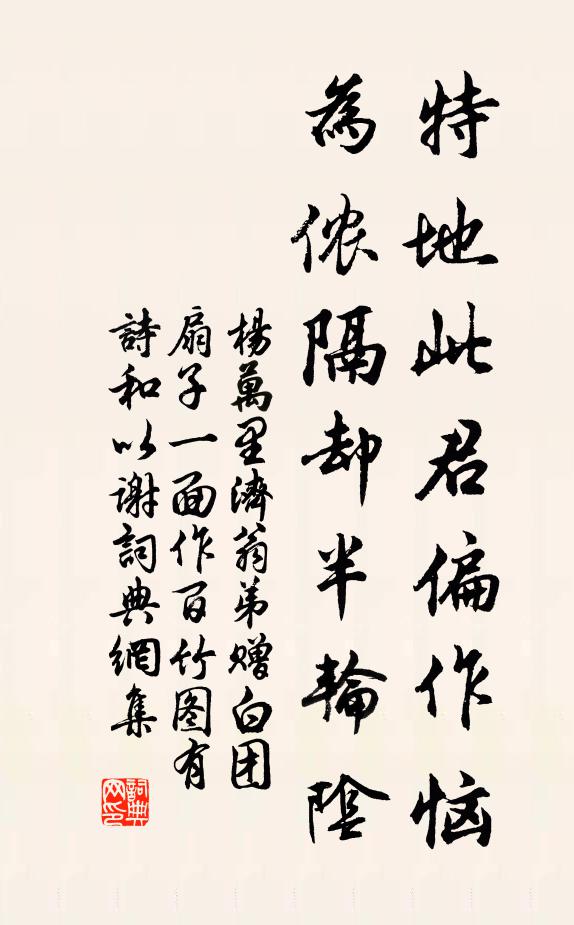 特地此君偏作恼
為侬隔却半輪陰
楊萬里濟翁弟赠白团
扇子一面作百竹图有
詩和以谢詞典網集
詞典
网印